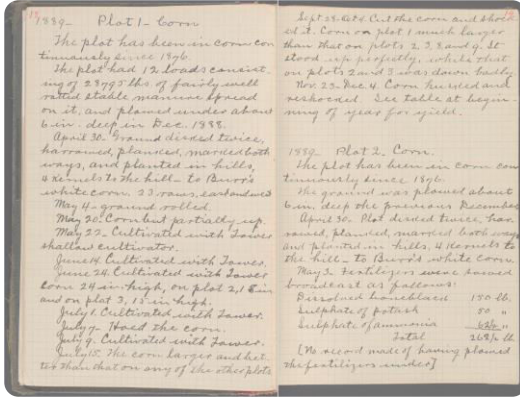 1889- Plot 1 - Corn
The plot has been in corn con
tinuously since 1876.
The plot had 12 loads consist-
ing of 28795 lbs. of fairly well
rotted stable manure spread
on it, and plowed under about
6 in. deep in Dec. 1888.
April 30. Ground disked twice,
harrowed, planked, marked both
ways, and planted in hills,
4 kernels to the hill - to Burr's
white corn, 33 rows, east and west
May 4 - ground rolled.
May 20. Corn but partially up.
May 22 - Cultivated with Tower
shallow cultivator.
June 14. Cultivated with Tower.
June 24. Cultivated with Tower
Corn 24 in. high, on plot 2, 18 in
and on plot 3, 15 in high.
July 1. Cultivated with Tower.
July 7. Hoed the corn.
July 9. Cultivated with Tower.
July 15. The corn larger and bet-
ter than that on any of the other plots
Sept 28. Oct 4. Cut the corn and shock-
ed it. Corn on plot 1 much larger
than that on plots 2, 3, 8 and 9. It
stood up perfectly, while that
on plots 2 and 3 was down badly.
Nov. 23 - Dec 4. Corn husked and
reshocked. See table at begin-
ning of year for yield.
1889 - Plot 2 - Corn.
The plot has been in corn con
tinuously since 1876.
The ground was plowed about
6 in. deep the previous December
April 30 - Plot disked twice, har-
rowed, planked, marked both ways
and planted in hills, 4 kernels to
the hill - to Burr's white corn.
May 3. Fertilizers were sowed
broadcast as follows:
Dissolved boneblack 150 lb.
Sulphate of potash 50 "
Sulphate of ammonia "
Total lb.
[No record made of having plowed
the fertilizers under]